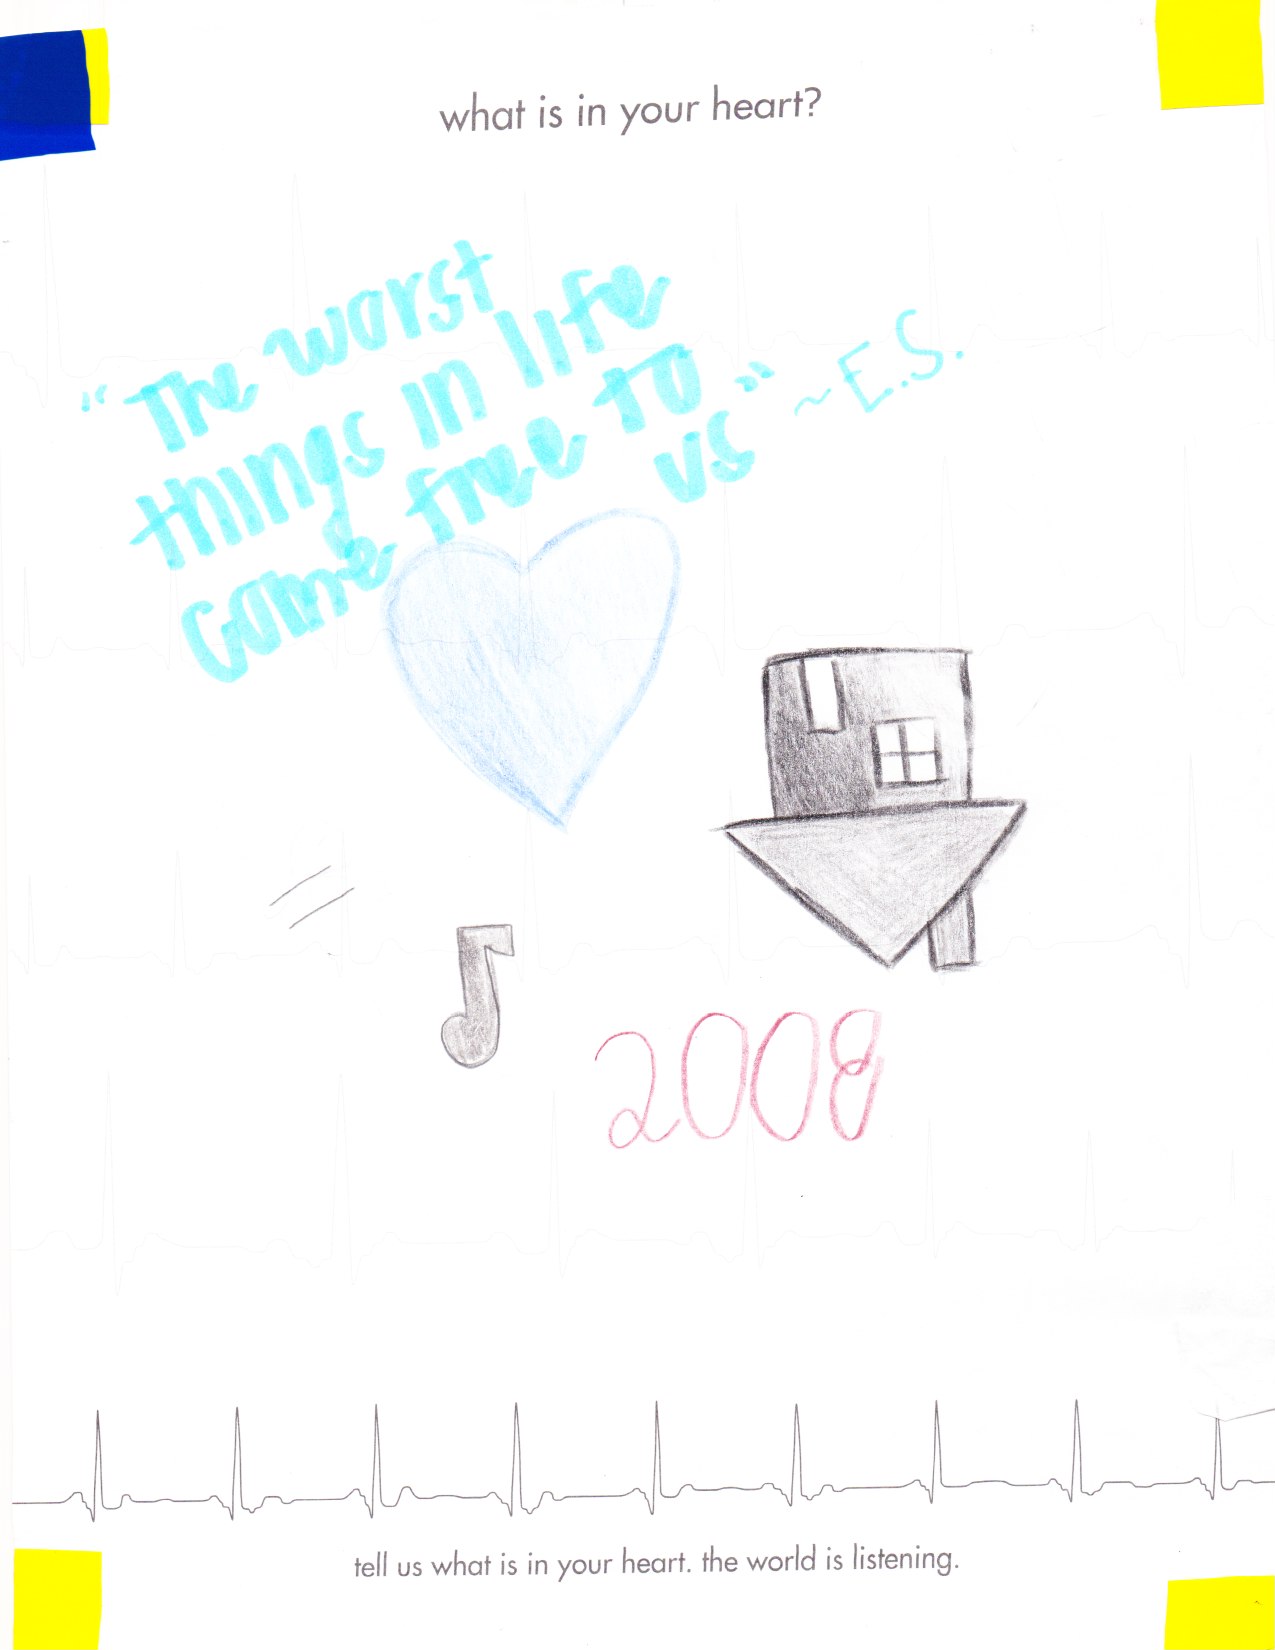 what is in your heart?
"The worst
things in life
come free to
us" ~E.S.
2008
tell us what is in your heart. the world is listening.